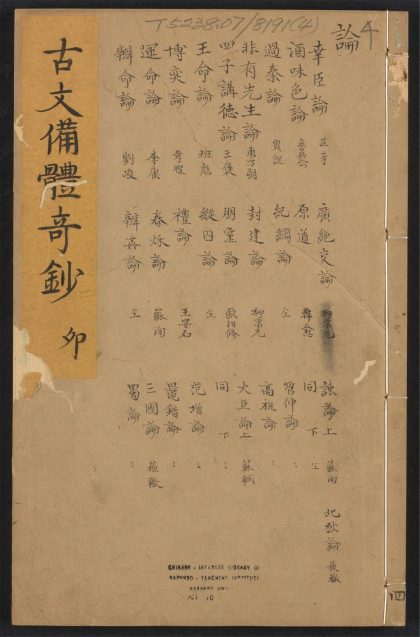 T5238.07/8191(4)
論 4
幸臣論 莊辛
酒味色論 魯共公
過秦論 賈誼
非有先生論 東方朔
四子講德論 王褒
王命論 班彪
博奕論 韋曜
運命論 李康
辨命論 劉峻
廣絕交論
原道 韓愈
紀綱論 仝
封建論 柳宗元
朋黨論 歐陽修
縱囚論 仝
禮論 王安石
春秋論 蘇洵
辨姦論 仝
北狄論 蘇轍
諫論上 蘇洵
同下 仝
管仲論
高祖論
大臣論上 蘇軾
同下
范增論
鼂錯論
三國論 蘇轍
蜀論
古文備體奇鈔 卯
CHINESE - JAPANESE LIBRARY OF
HARVARD - YENCHING INSTITUTE
四